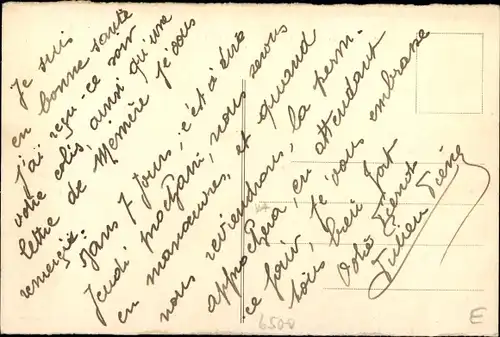 Je suis
en bonne santé
j'ai reçu ce soir
votre colis, ainsi qu'une
lettre de Mémère je vous
remercie.
Dans 7 jours, c'est à dire
jeudi prochain, nous serons
en manœuvres, et quand
nous reviendrons, la perm-
approchera, en attendant
ce jour, je vous embrasse
tous bien fort
Votre
Julien
6500
E